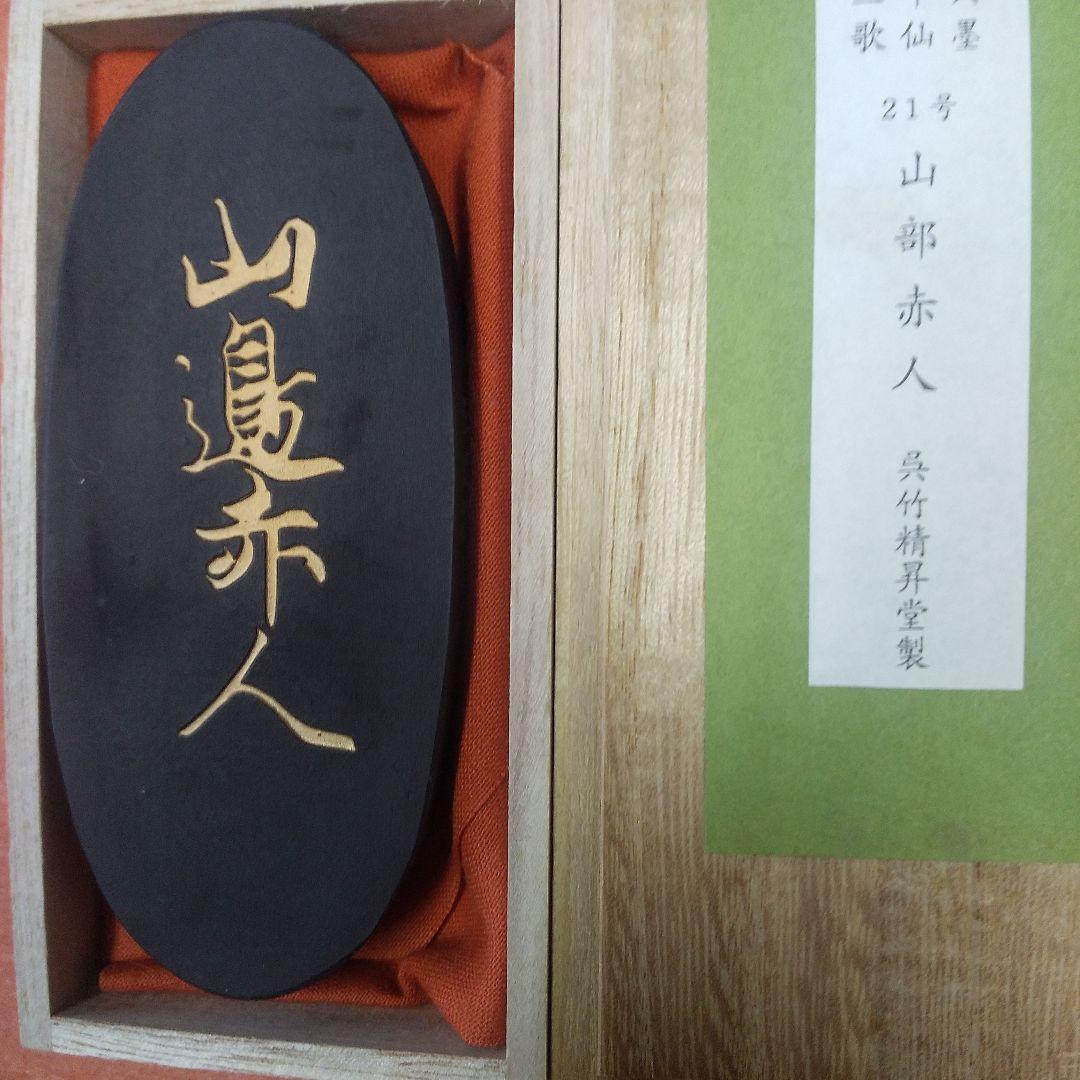 山邉赤人
墨
仙
歌
21号
山部赤人
呉竹精昇堂製